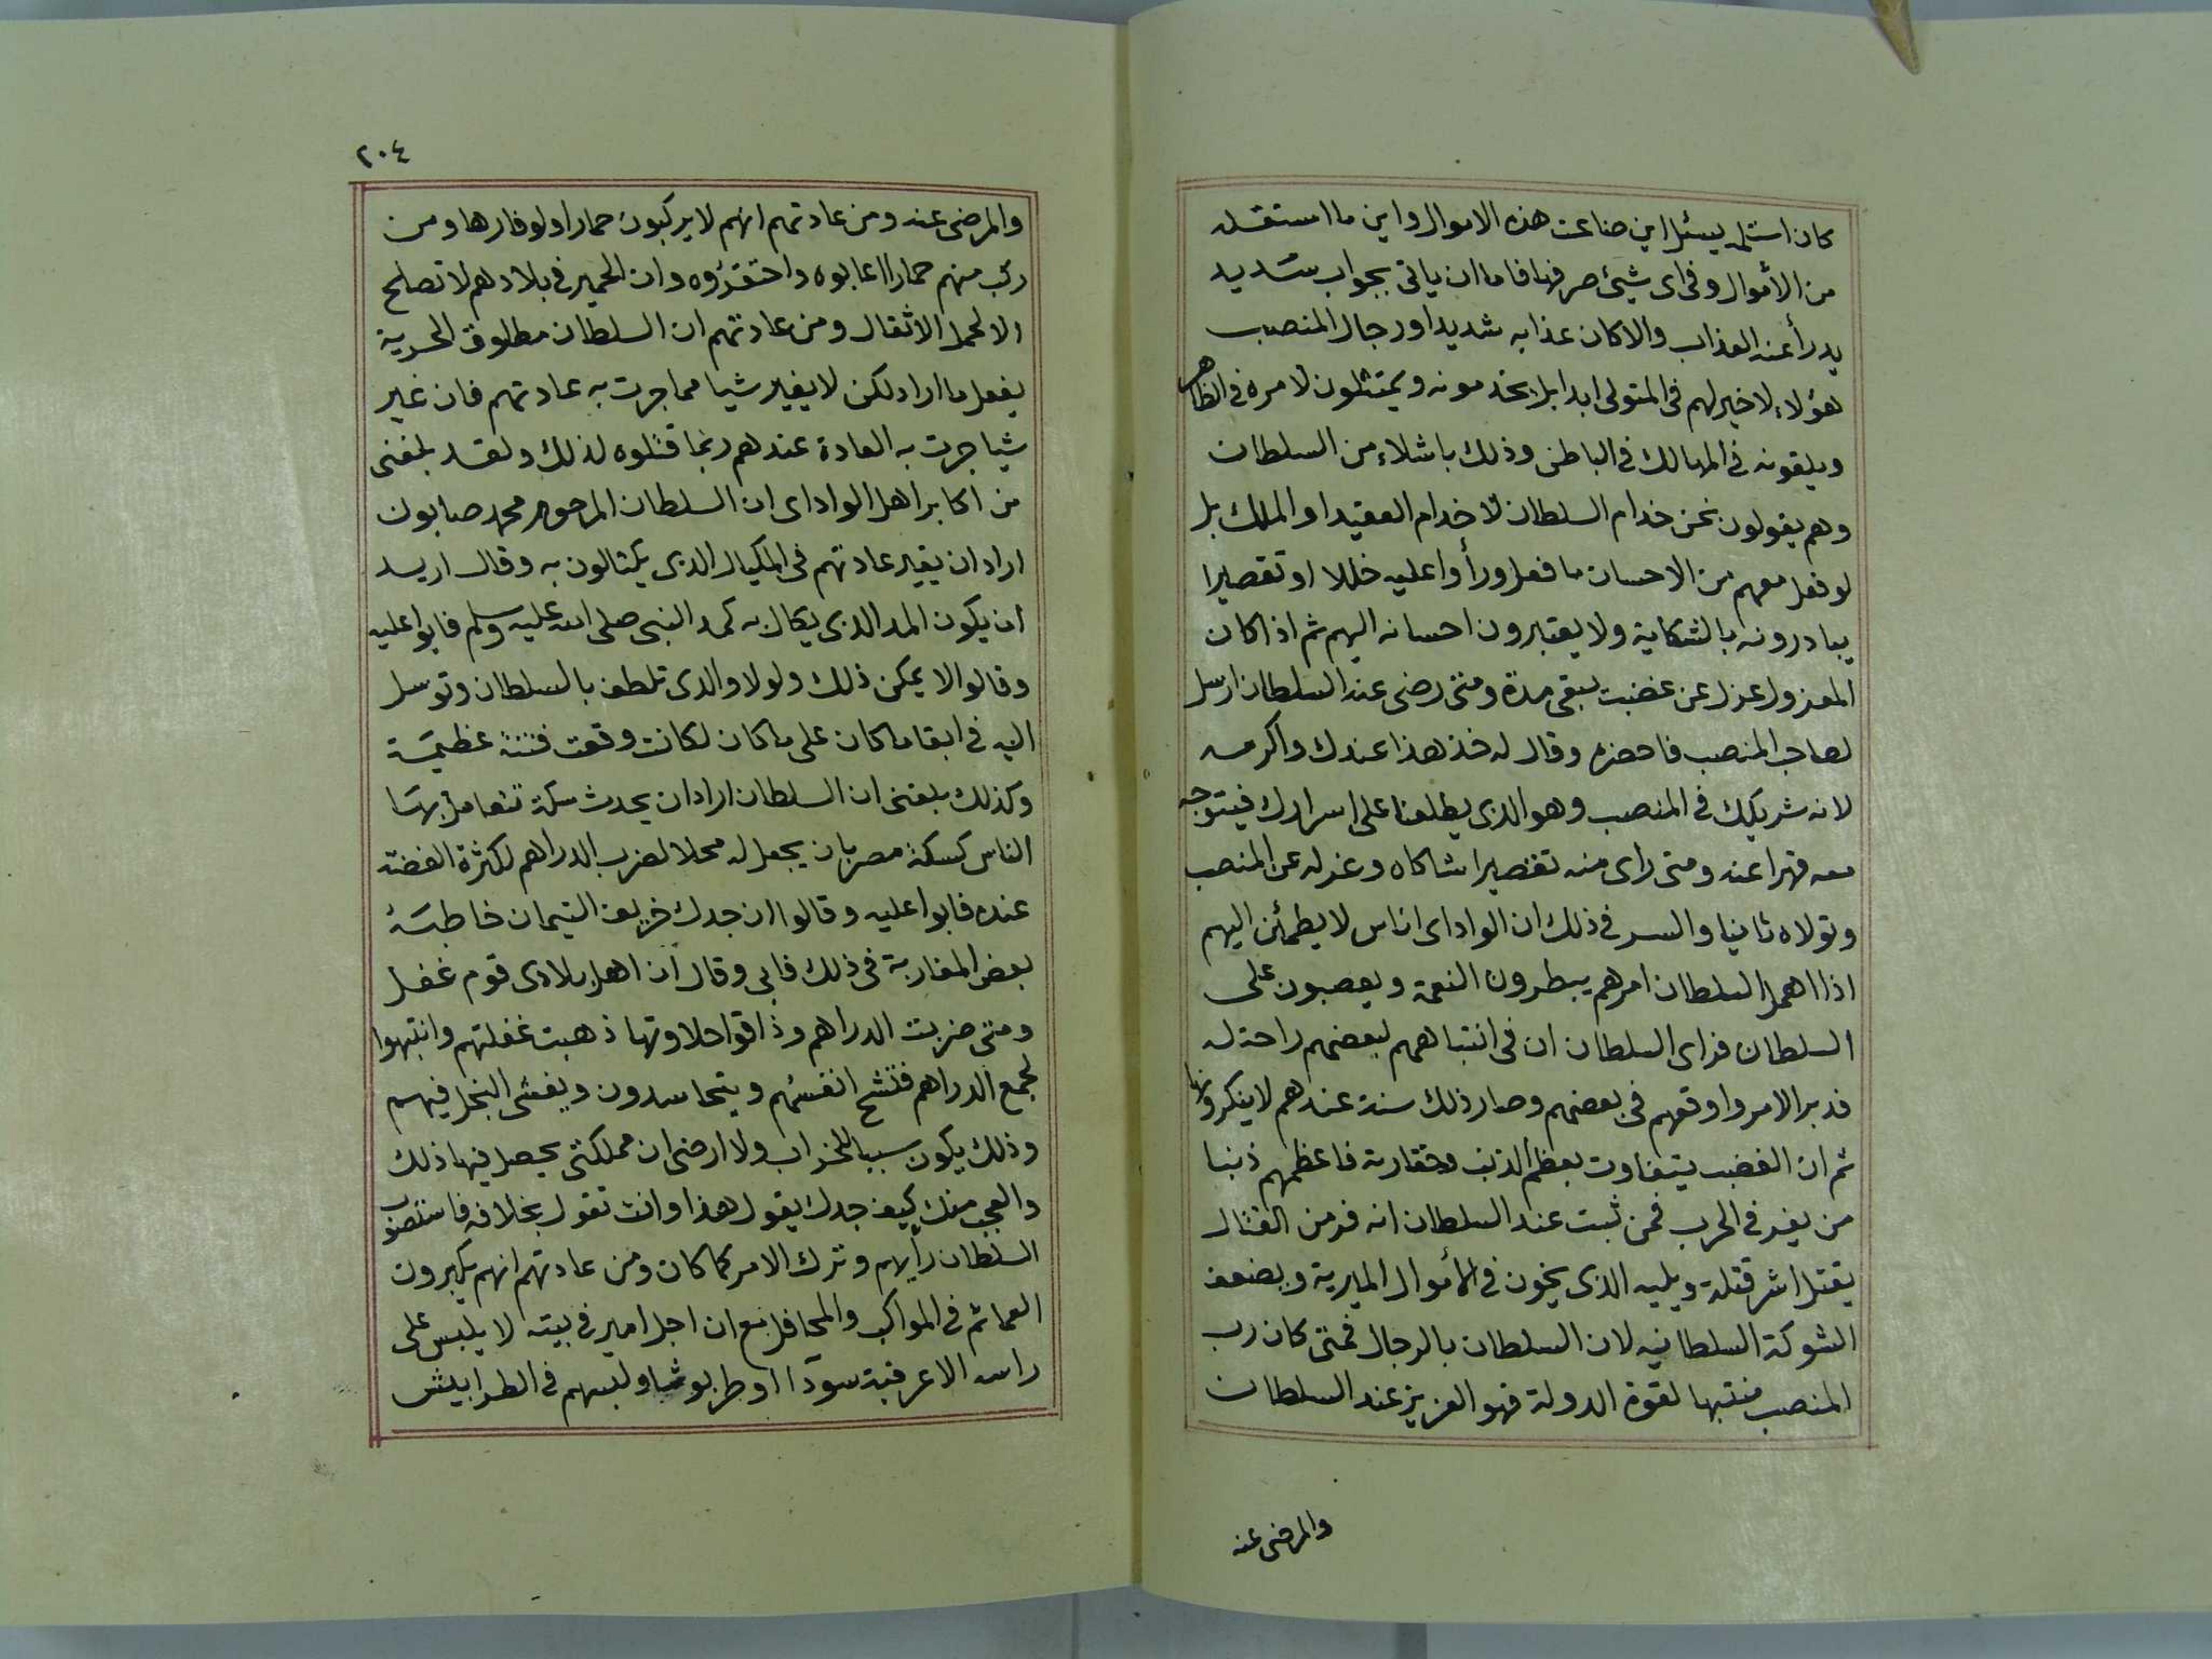 كان استلمه يسئل اين ضاعت هذه الاموال واين ما استقله
من الأموال وفى اى شيئ صرفها فاما ان ياتى بجواب سديد
يدرأ عنه العذاب والا كان عذابه شديدا ورجال المنصب
هؤلاء لا خير لهم فى المتولى ابدا بل يخدمونه ويمتثلون لامره فى الظاهر
ويلقونه فى المهالك فى الباطن وذلك باشلاء من السلطان
وهم يقولون نحن خدام السلطان لا خدام العقيد او الملك بل
لو فعل معهم من الاحسان ما فعل ورأوا عليه خللا او تقصيرا
يبادرونه بالشكاية ولا يعتبرون احسانه اليهم ثم اذا كان
المعزول عزل عن غضبت يبقى مدة ومتى رضى عنه السلطان ارسل
لصاحب المنصب فاحضره وقال له خذ هذا عندك واكرمه
لانه شريكك فى المنصب وهو الذى يطلعنا على اسرارك فيتوجه
معه قهرا عنه ومتى راى منه تقصيرا شاكاه وعزله عن المنصب
وتولاه ثانيا والسر فى ذلك ان الواداى اناس لا يطمئن اليهم
اذا اهمل السلطان امرهم يبطرون النعمة ويعصبون على
السلطان فراى السلطان ان فى انتباههم لبعضهم راحة له
فدبر الامر واوقعهم فى بعضهم وصار ذلك سنة عندهم لا ينكرونها
ثم ان الغضب يتفاوت بعظم الذنب وحقارته فاعظمهم ذنبا
من يفر فى الحرب فمن ثبت عند السلطان انه فر من القتال
يقتل اشر قتلة ويليه الذى يخون فى الأموال الميرية ويضعف
الشوكة السلطانيه لان السلطان بالرجال فمتى كان رب
المنصب منتبها لقوة الدولة فهو العزيز عند السلطان
والمرضى عنه
٢٠٤
والمرضى عنه ومن عادتهم انهم لا يركبون حمارا ولو فارها ومن
ركب منهم حمارا اعابوه واحتقرؤه وان الحمير فى بلادهم لا تصلح
الا لحمل الاثقال ومن عادتهم ان السلطان مطلوق الحرية
يفعل ما اراد لكن لا يغير شيا مما جرت به عادتهم فان غير
شيا جرت به العادة عندهم ربما قتلوه لذلك ولقد بلغنى
من اكابر اهل الواداى ان السلطان المرحوم محمد صابون
اراد ان يغير عادتهم فى المكيال الذى يكتالون به وقال اريد
ان يكون المد الذى يكال به كمد النبى صلى الله عليه وسلم فابوا عليه
وقالوا لا يمكن ذلك ولولا والدى تلطف بالسلطان وتوسل
اليه فى ابقا ما كان على ما كان لكانت وقعت فتنة عظيمة
وكذلك بلغنى ان السلطان اراد ان يحدث سكة تتعامل بها
الناس كسكة مصر بان يجعل له محلا لضرب الدراهم لكثرة الفضة
عنده فابوا عليه وقالوا ان جدك خريف التيمان خاطبه
بعض المغاربة فى ذلك فابى وقال ان اهل بلادى قوم غفل
ومتى ضربت الدراهم وذاقوا حلاوتها ذهبت غفلتهم وانتبهوا
لجمع الدراهم فتشح انفسهم ويتحاسدون ويفشى البخل فيهم
وذلك يكون سببا للخراب ولا ارضى ان مملكتى يحصل فيها ذلك
والعجب منك كيف جدك يقول هذا وانت تقول بخلافه فاستصوب
السلطان رأيهم وترك الامر كما كان ومن عادتهم انهم يكبرون
العمائم فى المواكب والمحافل مع ان اجل امير فى بيته لا يلبس على
راسه الا عرقية سودآا او طربوشا ولبسهم فى الطرابيش